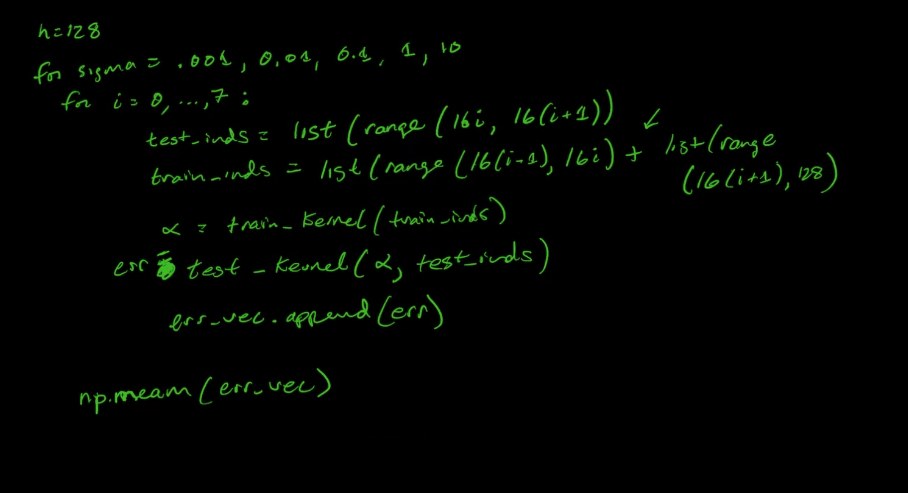 h=128
for sigma = .001, 0.01, 0.1, 1, 10
for i = 0, ..., 7 :
test_inds = list (range (16i, 16(i+1))
train_inds = list (range (16(i-1), 16i) + list (range
(16(i+1), 128)
α = train_kernel (train_inds)
err = test_kernel (α, test_inds)
err_vec.append (err)
np.mean (err_vec)